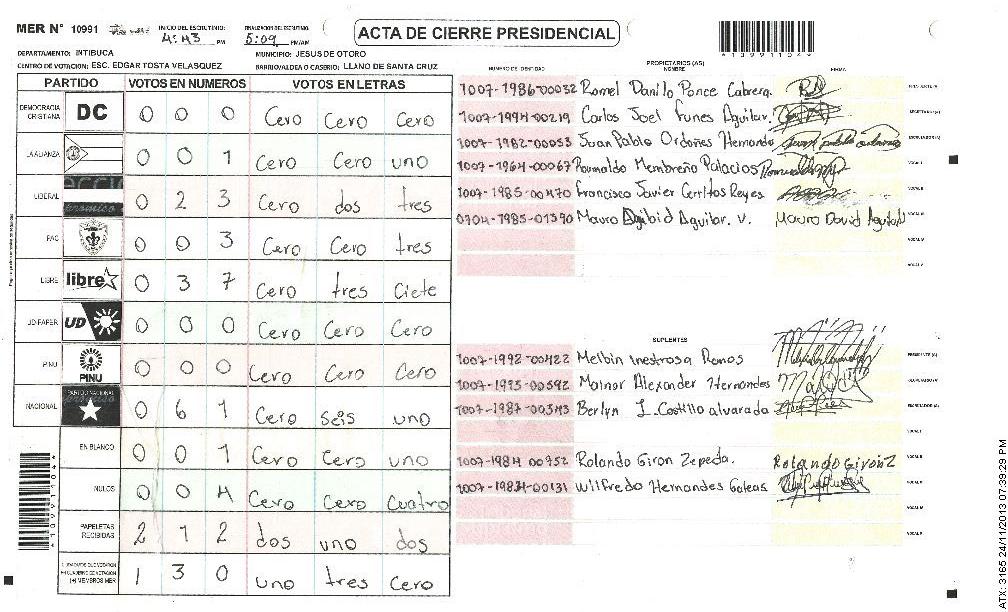 MER N° 10991 INICIO DEL ESCRUTINIO: 4:43 PM FINALIZACION DEL ESCRUTINIO: 5:09 PM/AM
ACTA DE CIERRE PRESIDENCIAL
*10991104*
DEPARTAMENTO: INTIBUCA MUNICIPIO: JESUS DE OTORO
CENTRO DE VOTACION: ESC. EDGAR TOSTA VELASQUEZ BARRIO/ALDEA O CASERIO: LLANO DE SANTA CRUZ
PARTIDO VOTOS EN NUMEROS VOTOS EN LETRAS
DEMOCRACIA CRISTIANA DC 0 0 0 Cero Cero Cero
LA ALIANZA 0 0 1 Cero Cero uno
LIBERAL 0 2 3 Cero dos tres
PAC 0 0 3 Cero Cero tres
LIBRE libre 0 3 7 Cero tres Ciete
UD-FAPER UD 0 0 0 Cero Cero Cero
PINU PINU 0 0 0 Cero Cero Cero
NACIONAL PARTIDO NACIONAL 0 6 1 Cero seis uno
EN BLANCO 0 0 1 Cero Cero uno
NULOS 0 0 4 Cero Cero Cuatro
PAPELETAS RECIBIDAS 2 1 2 dos uno dos
(+) MIEMBROS MER 1 3 0 uno tres Cero
*10991104*
NUMERO DE IDENTIDAD PROPIETARIOS (AS) NOMBRE FIRMA
1007-1986-00032 Romel Danilo Ponce Cabrera.
1007-1994-00219 Carlos Joel Funes Aguilar. SECRETARIO(A)
1007-1982-00053 Juan Pablo Ordoñes Hernando ESCRUTADOR(A)
1007-1964-00067 Romualdo Membreño Palacios VOCAL I
1007-1985-00470 Francisco Javier Cerritos Reyes VOCAL II
0704-1985-01390 Mauro David Aguilar. V. Mauro David Aguilar VOCAL III
VOCAL IV
VOCAL V
SUPLENTES
1007-1992-00422 Melbin inestrosa Ramos PRESIDENTE (A)
1007-1993-00592 Mainor Alexander Hernandes
1007-1987-00343 Berlyn J. Costillo alvarada
VOCAL I
1007-1984 00952 Rolando Giron Zepeda. Rolando Giron Z VOCAL II
1007-1984-00131 Wilfredo Hernandes Galeas VOCAL III
VOCAL IV
VOCAL V
ATX: 3165 24/11/2013 07:39:29 PM